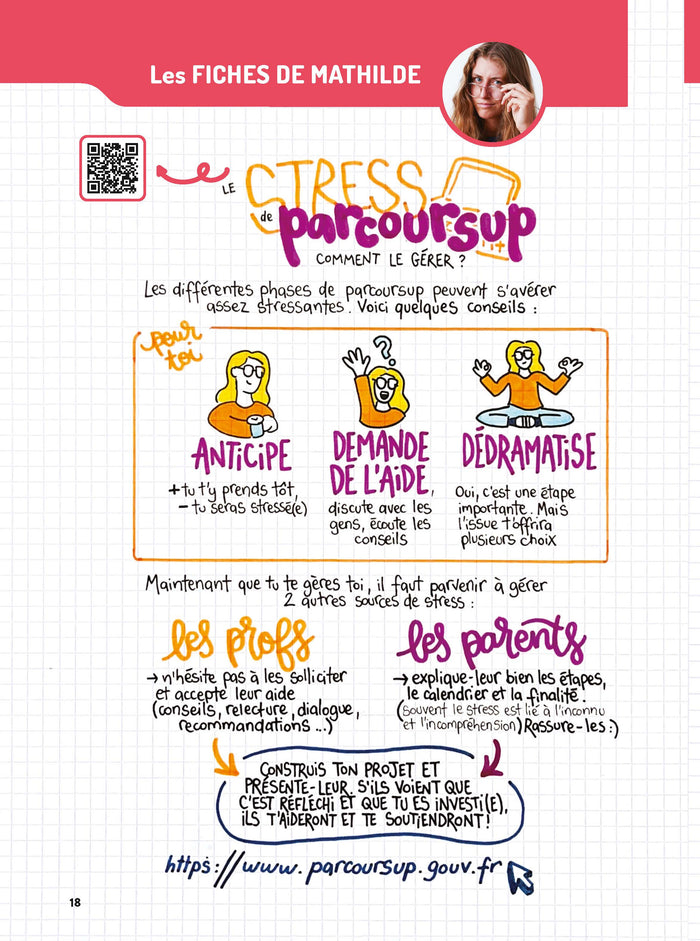 Les FICHES DE MATHILDE
LE STRESS
de parcoursup
COMMENT LE GÉRER ?
Les différentes phases de parcoursup peuvent s'avérer
assez stressantes. Voici quelques conseils :
pour
toi
ANTICIPE
+ tu t'y prends tôt,
- tu seras stressé(e)
DEMANDE
DE L'AIDE,
discute avec les
gens, écoute les
conseils
DÉDRAMATISE
Oui, c'est une étape
importante. Mais
l'issue t'offrira
plusieurs choix
Maintenant que tu te gères toi, il faut parvenir à gérer
2 autres sources de stress :
les profs
→ n'hésite pas à les solliciter
et accepte leur aide
(conseils, relecture, dialogue,
recommandations ...)
les parents
→ explique-leur bien les étapes,
le calendrier et la finalité.
(souvent le stress est lié à l'inconnu
et l'incompréhension) Rassure-les :)
CONSTRUIS TON PROJET ET
PRÉSENTE-LEUR. S'ILS VOIENT QUE
C'EST RÉFLÉCHI ET QUE TU ES INVESTI(E),
ILS T'AIDERONT ET TE SOUTIENDRONT !
https://www.parcoursup.gouv.fr
18